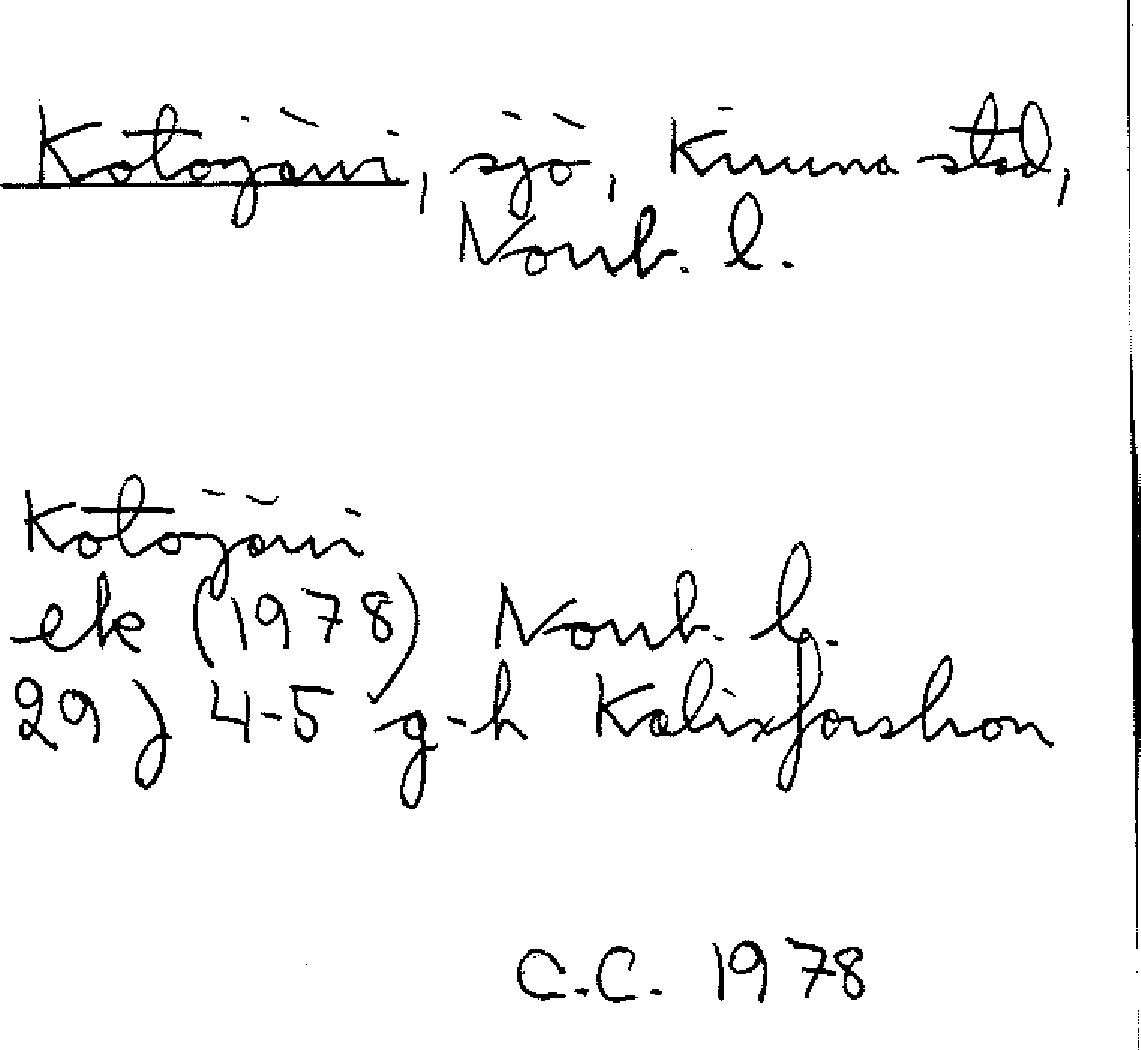 Kotojärvi, sjö, Kiruna stad,
Norrb. l.
Kotojärvi
ek (1978) Norrb. l.
29 J 4-5 g-h Kalixforsbron
C.C. 1978